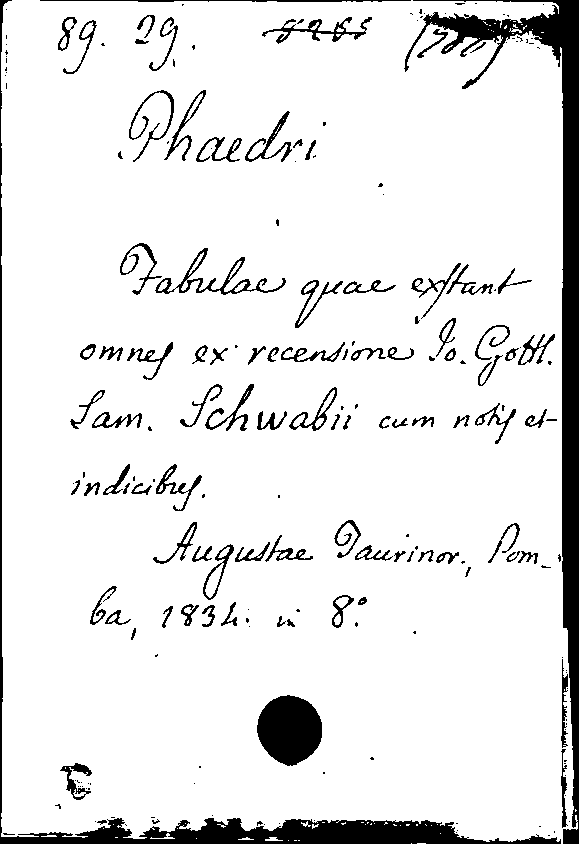 89. 29. 8265
Phaedri
Fabulae quae exstant
omnes ex recensione Io. Gottl.
Sam. Schwabii cum notis et
indicibus.
Augustae Taurinor., Pom-
ba, 1834. in 8.°